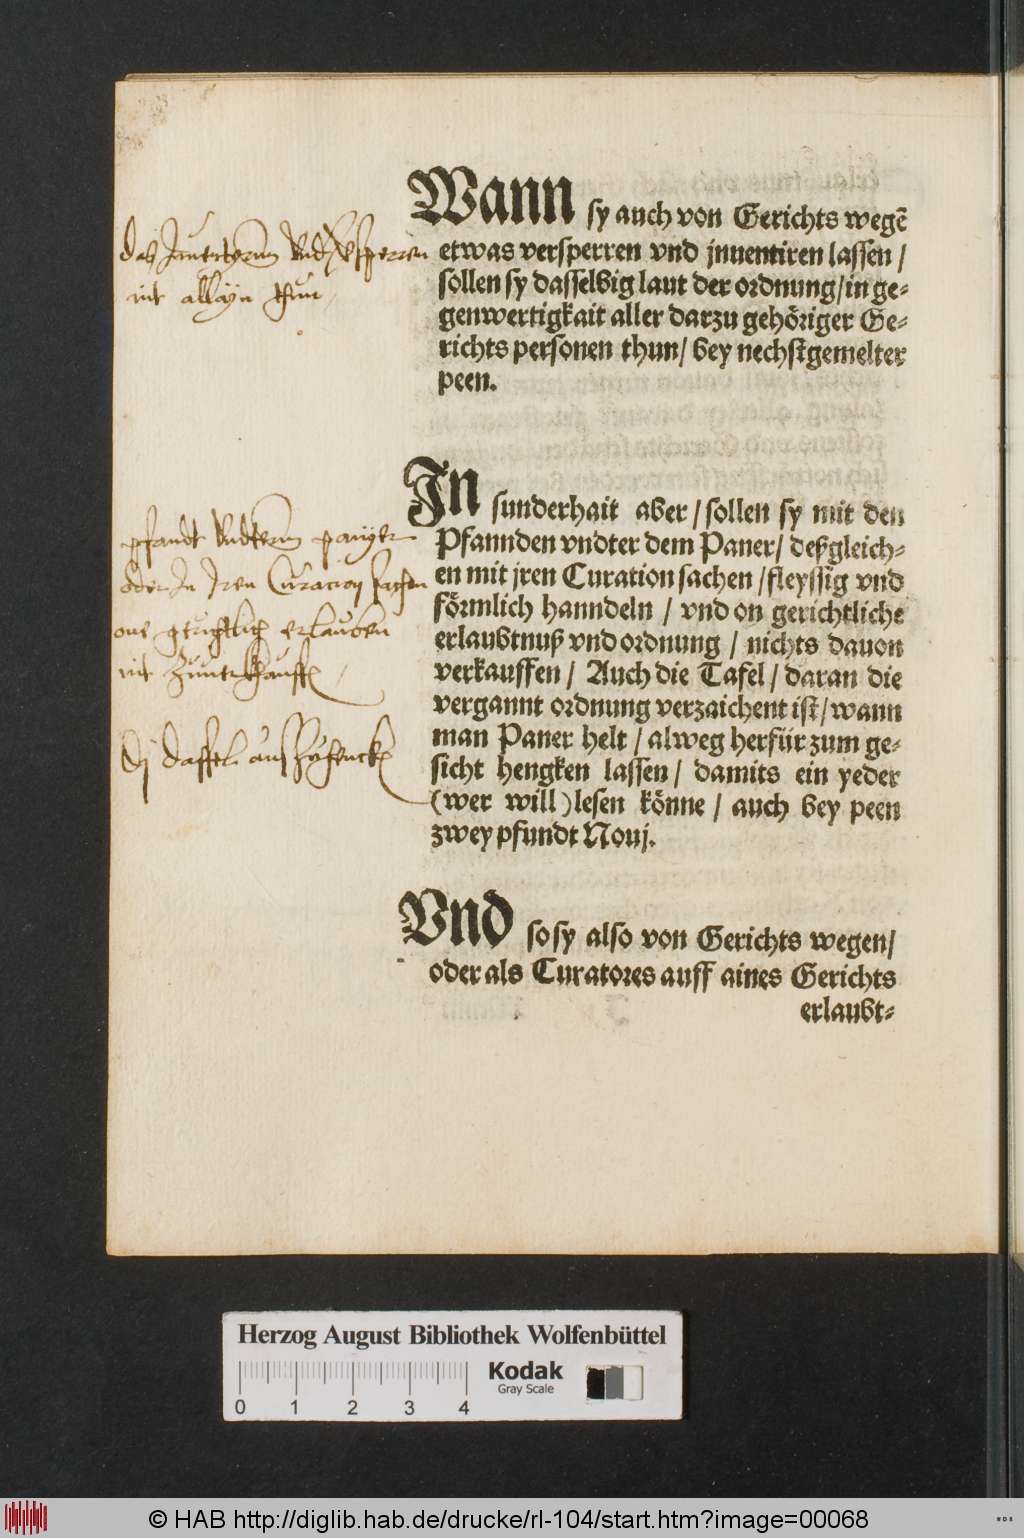 Wann sy auch von Gerichts wegē
etwas versperren vnd jnuentiren lassen /
sollen sy dasselbig laut der ordnung / in ge-
genwertigkait aller darzu gehöriger Ge-
richts personen thun / bey nechstgemelter
peen.
das Inuentyrnn vnd versperren
nit allayn thun
In sunderhait aber / sollen sy mit den
Pfannden vndter dem Paner / deßgleich-
en mit jren Curation sachen / fleyssig vnd
förmlich hanndeln / vnd on gerichtliche
erlaubtnuß vnd ordnung / nichts dauon
verkauffen / Auch die Tafel / daran die
vergannt ordnung verzaichent ist / wann
man Paner helt / alweg herfür zum ge-
sicht hengken lassen / damits ein yeder
(wer will) lesen könne / auch bey peen
zwey pfundt Nouj.
pfandt vndterm panyer
oder In Iren Curacion sachen
one grichtlich erlauben
nit
Dj daffel aus
Vnd so sy also von Gerichts wegen /
oder als Curatores auff aines Gerichts
erlaubt-
Herzog August Bibliothek Wolfenbüttel
Kodak
Gray Scale
0 1 2 3 4
© HAB http://diglib.hab.de/drucke/rl-104/start.htm?image=00068